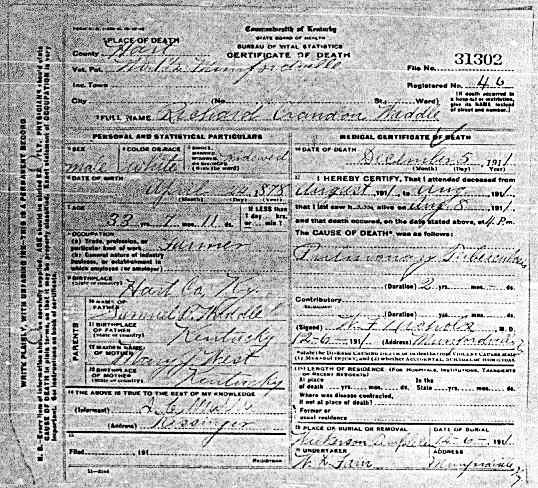 Commonwealth of Kentucky
STATE BOARD OF HEALTH
BUREAU OF VITAL STATISTICS
CERTIFICATE OF DEATH
PLACE OF DEATH
County Hart
Vot. Pct. Munfordville
Inc. Town
City (No. St., Ward)
File No. 31302
Registered No. 46
(If death occurred in a hospital or institution, give its NAME instead of street and number.)
FULL NAME Richard Crandon Weddle
PERSONAL AND STATISTICAL PARTICULARS
SEX male
COLOR OR RACE white
widowed
(Write the word)
DATE OF BIRTH
4, 1878
(Month) (Day) (Year)
AGE
33 yrs. 7 mos. 11 ds.
If LESS than
1 day, hrs.
or min.?
OCCUPATION
(a) Trade, profession, or particular kind of work Farmer
(b) General nature of industry business, or establishment in which employed (or employer)
BIRTHPLACE
(State or country) Hart Co. Ky
PARENTS
10 NAME OF FATHER Samuel P. Weddle
11 BIRTHPLACE OF FATHER (State or country) Kentucky
12 MAIDEN NAME OF MOTHER Nancy West
13 BIRTHPLACE OF MOTHER (State or country) Kentucky
THE ABOVE IS TRUE TO THE BEST OF MY KNOWLEDGE
(Informant)
(Address) Kessinger
Filed 191
Registrar
MEDICAL CERTIFICATE OF DEATH
DATE OF DEATH
December 5, 1911
(Month) (Day) (Year)
I HEREBY CERTIFY, That I attended deceased from
August 1911, to Aug 1911,
that I last saw h alive on Aug 8 1911,
and that death occurred, on the date stated above, at 4 P.m.
The CAUSE OF DEATH* was as follows:
Pulmonary Tuberculosis
(Duration) 2 yrs. mos. ds.
Contributory
(Duration) yrs. mos. ds.
(Signed) M. D.
12-6-1911 (Address) Munfordville
*State the DISEASE CAUSING DEATH, or, in deaths from VIOLENT CAUSES, state (1) MEANS OF INJURY; and (2) whether ACCIDENTAL, SUICIDAL or HOMICIDAL
LENGTH OF RESIDENCE (FOR HOSPITALS, INSTITUTIONS, TRANSIENTS OR RECENT RESIDENTS)
At place of death yrs. mos. ds. In the State yrs. mos. ds.
Where was disease contracted, If not at place of death?
Former or usual residence
PLACE OF BURIAL OR REMOVAL
DATE OF BURIAL
12-6-1911
UNDERTAKER
ADDRESS
Munfordville
WRITE PLAINLY, WITH UNFADING INK—THIS IS A PERMANENT RECORD